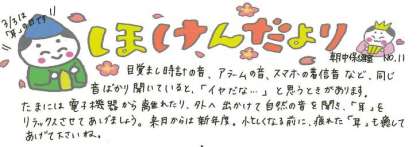 3/3は
「耳」の日です
ほけんだより
朝中保健室 NO.11
目覚まし時計の音、アラームの音、スマホの着信音など、同じ
音ばかり聞いていると、「イヤだな…」と思うときがあります。
たまには電子機器から離れたり、外へ出かけて自然の音を聞き、「耳」を
リラックスさせてあげましょう。来月からは新年度。忙しくなる前に、疲れた「耳」も癒して
あげて下さいね。